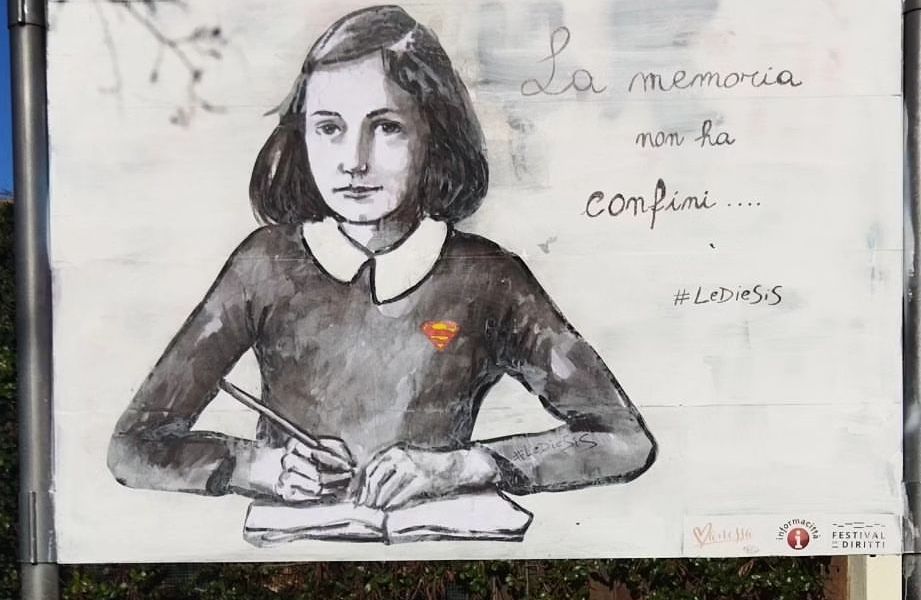 La memoria
non ha
confini ....
#LeDieSiS
#LeDieSiS
informacittà
FESTIVAL
DIRITTI